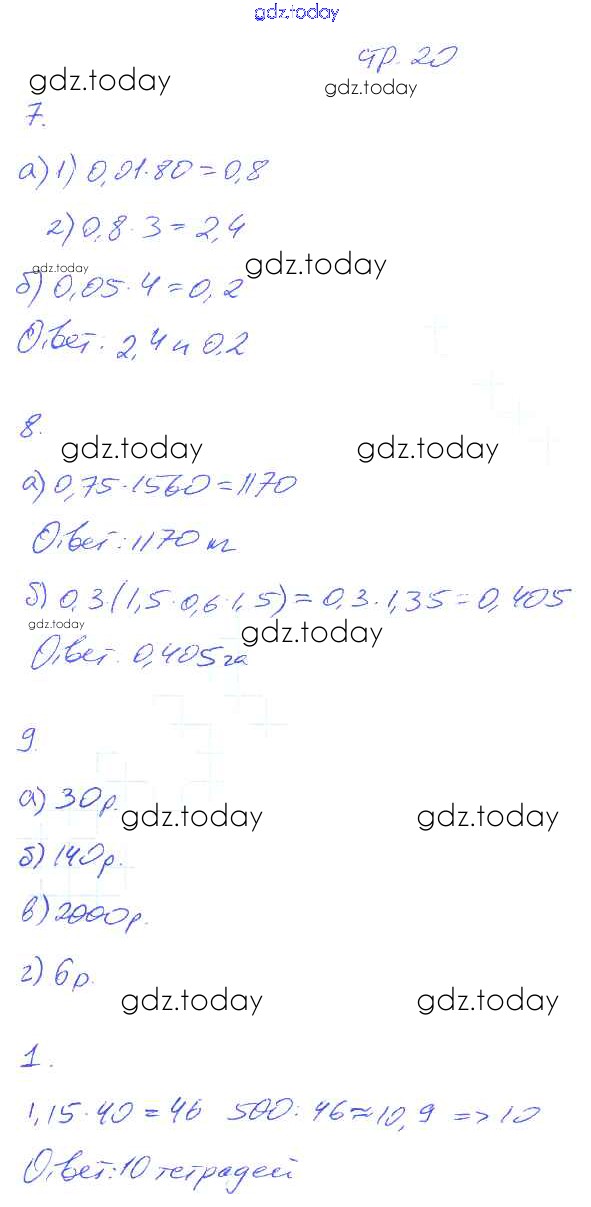 gdz.today
стр. 20
gdz.today gdz.today
7.
а) 1) 0,01·80=0,8
2) 0,8·3=2,4
gdz.today gdz.today
б) 0,05·4=0,2
Ответ: 2,4 и 0,2
8.
gdz.today gdz.today
а) 0,75·1560=1170
Ответ: 1170 т
б) 0,3·(1,5·0,6·1,5)=0,3·1,35=0,405
gdz.today gdz.today
Ответ: 0,405 га
9.
а) 30 р.
gdz.today gdz.today
б) 140 р.
в) 2000 р.
г) 6 р.
gdz.today gdz.today
1.
1,15·40=46 500:46≈10,9 => 10
Ответ: 10 тетрадей